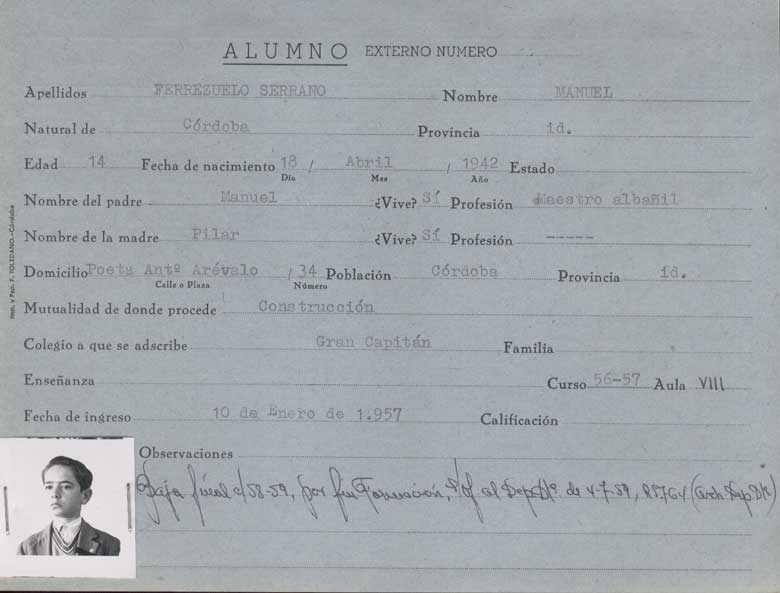 ALUMNO EXTERNO NUMERO
Apellidos FERREZUELO SERRANO Nombre MANUEL
Natural de Córdoba Provincia id.
Edad 14 Fecha de nacimiento 18 / Abril / 1942 Estado
Día Mes Año
Nombre del padre Manuel ¿Vive? Sí Profesión Maestro albañil
Nombre de la madre Pilar ¿Vive? Sí Profesión -----
Domicilio Poeta Antº Arévalo / 34 Población Córdoba Provincia id.
Calle o Plaza Número
Mutualidad de donde procede Construcción
Colegio a que se adscribe Gran Capitán Familia
Enseñanza Curso 56-57 Aula VIII
Fecha de ingreso 10 de Enero de 1.957 Calificación
Observaciones
Baja final c/58-59, por fin Formación, al de 4-7-59,
Imp. y Pap. F. TOLEDANO.-Córdoba